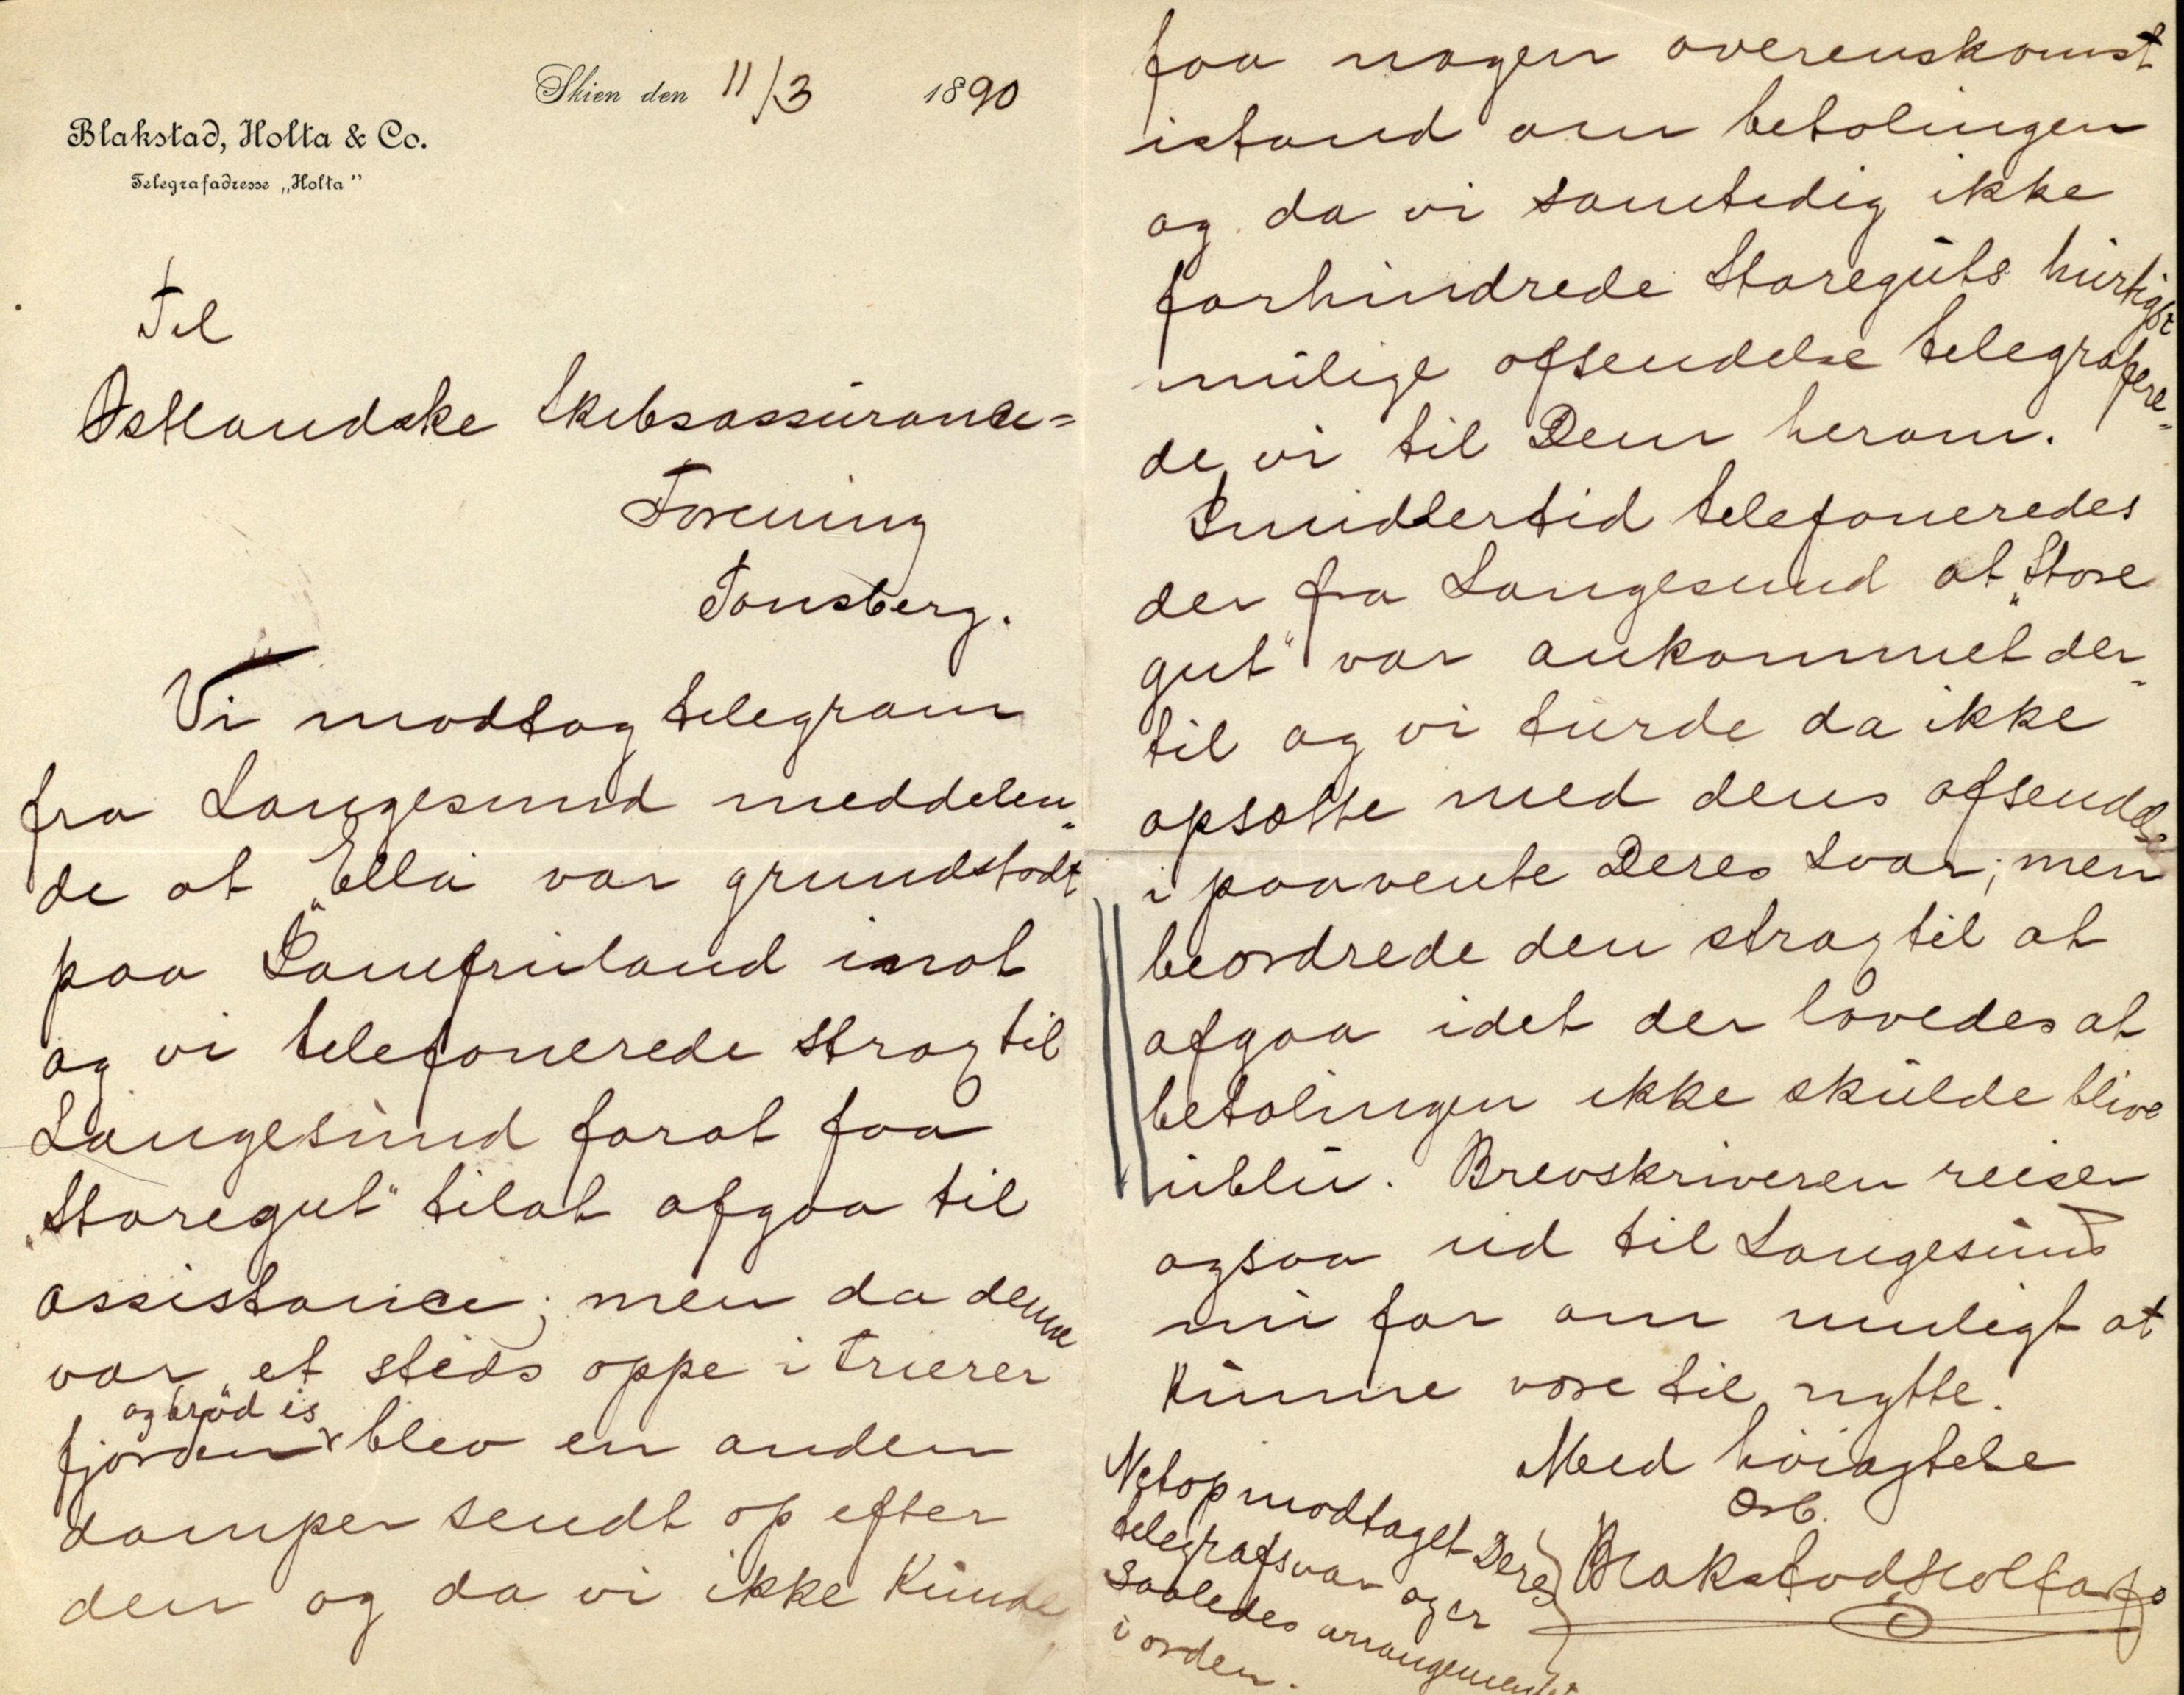 Skien den 11/3 1890
Blakstad, Holta & Co.
Telegrafadresse „Holta”
Til
Østlandske Skibsassurance=
Forening
Tønsberg.
Vi modtog telegram
fra Langesund meddelen-
de at „Ella” var grundstødt
paa Jomfruland inat
og vi telefonerede strax til
Langesund forat faa
„Storegut” tilat afgaa til
assistance; men da denne
var et steds oppe i Frier
fjorden og brød is blev en anden
damper sendt op efter
den og da vi ikke kunde
faa nogen overenskomst
istand om betalingen
og da vi samtidig ikke
forhindrede Storeguts hurtigst
mulige afsendelse telegrafere-
de vi til Dem herom.
Imidlertid telefoneredes
der fra Langesund at „Store
gut” var ankommet der-
til og vi turde da ikke
opsætte med dens afsendelse
i paavente Deres svar; men
beordrede den strax til at
afgaa idet der lovedes at
betalingen ikke skulde blive
ublu. Brevskriveren reiser
ogsaa ud til Langesund
nu for om muligt at
kunne være til nytte.
Med høiagtelse
Erb.
Blakstad Holta & Co
Netop modtaget Deres
telegrafsvar og er
saaledes arrangementet
i orden.